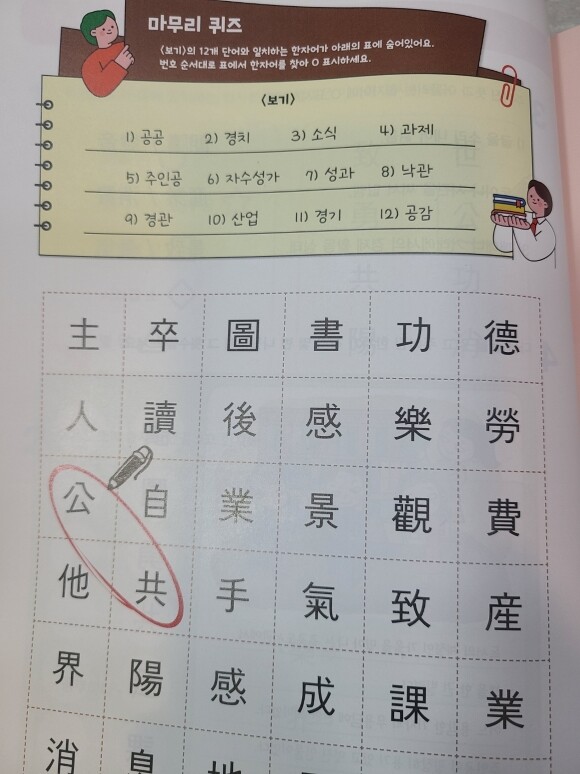 마무리 퀴즈
<보기>의 12개 단어와 일치하는 한자어가 아래의 표에 숨어있어요.
번호 순서대로 표에서 한자어를 찾아 O 표시하세요.
<보기>
1) 공공 2) 경치 3) 소식 4) 과제
5) 주인공 6) 자수성가 7) 성과 8) 낙관
9) 경관 10) 산업 11) 경기 12) 공감
主 卒 圖 書 功 德
人 讀 後 感 樂 勞
公 自 業 景 觀 費
他 共 手 氣 致 産
界 陽 感 成 課 業
消 息 地